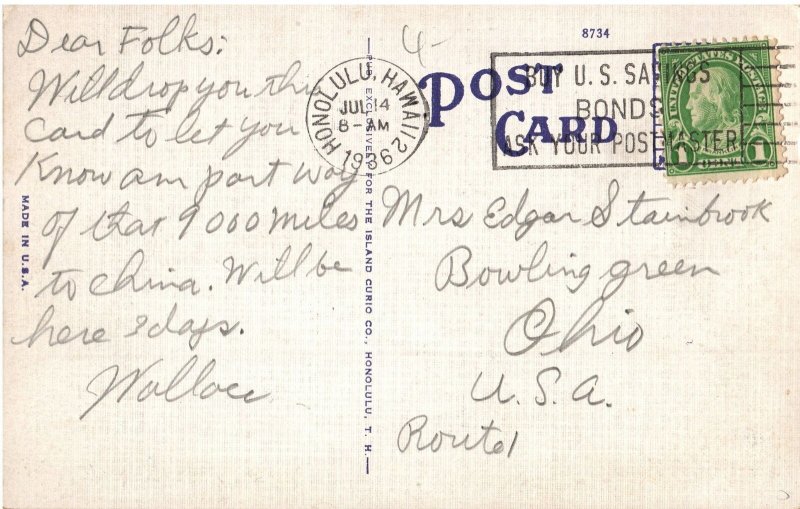 Dear Folks:
Will drop you this
card to let you
Know am part way
of that 9000 miles
to China. Will be
here 2 days.
Wallace
MADE IN U.S.A.
PUB. EXCLUSIVELY FOR THE ISLAND CURIO CO., HONOLULU, T. H.
4-
8734
POST
CARD
HONOLULU, HAWAII 2
JUL 14
8-AM
1936
BUY U.S. SAVINGS
BONDS
ASK YOUR POSTMASTER
1 1
Mrs Edgar Stainbrook
Bowling green
Ohio
U.S.A.
Route 1